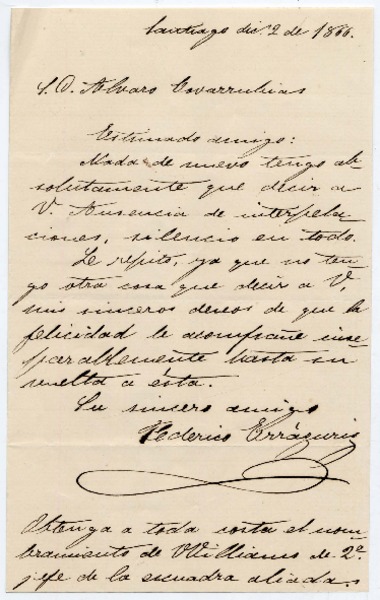 Santiago dic. 2 de 1866.
S. D. Alvaro Covarrubias
Estimado amigo:
Nada de nuevo tengo ab
solutamente que decir a
V. Ausencia de interpela
ciones, silencio en todo.
Le repito, ya que no ten
go otra cosa que decir a V,
mis sinceros deseos de que la
felicidad le acompañe inse
parablemente hasta su
vuelta a ésta.
Su sincero amigo
Federico Errázuris
Obtenga a toda costa el nom
bramiento de Williams de 2º
jefe de la escuadra aliada.